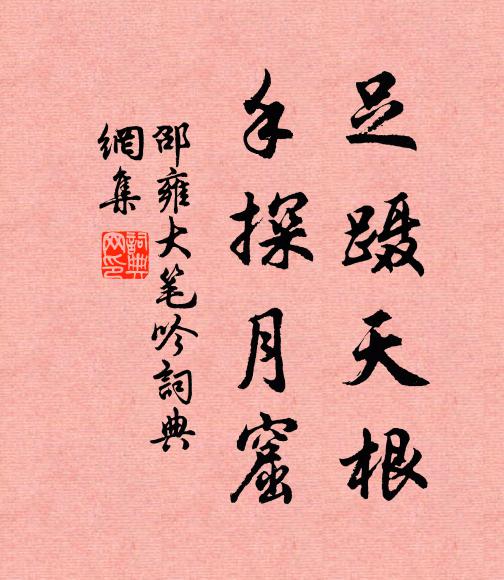 足蹑天根
手探月窟
邵雍大笔吟詞典
網集
詞典
网印